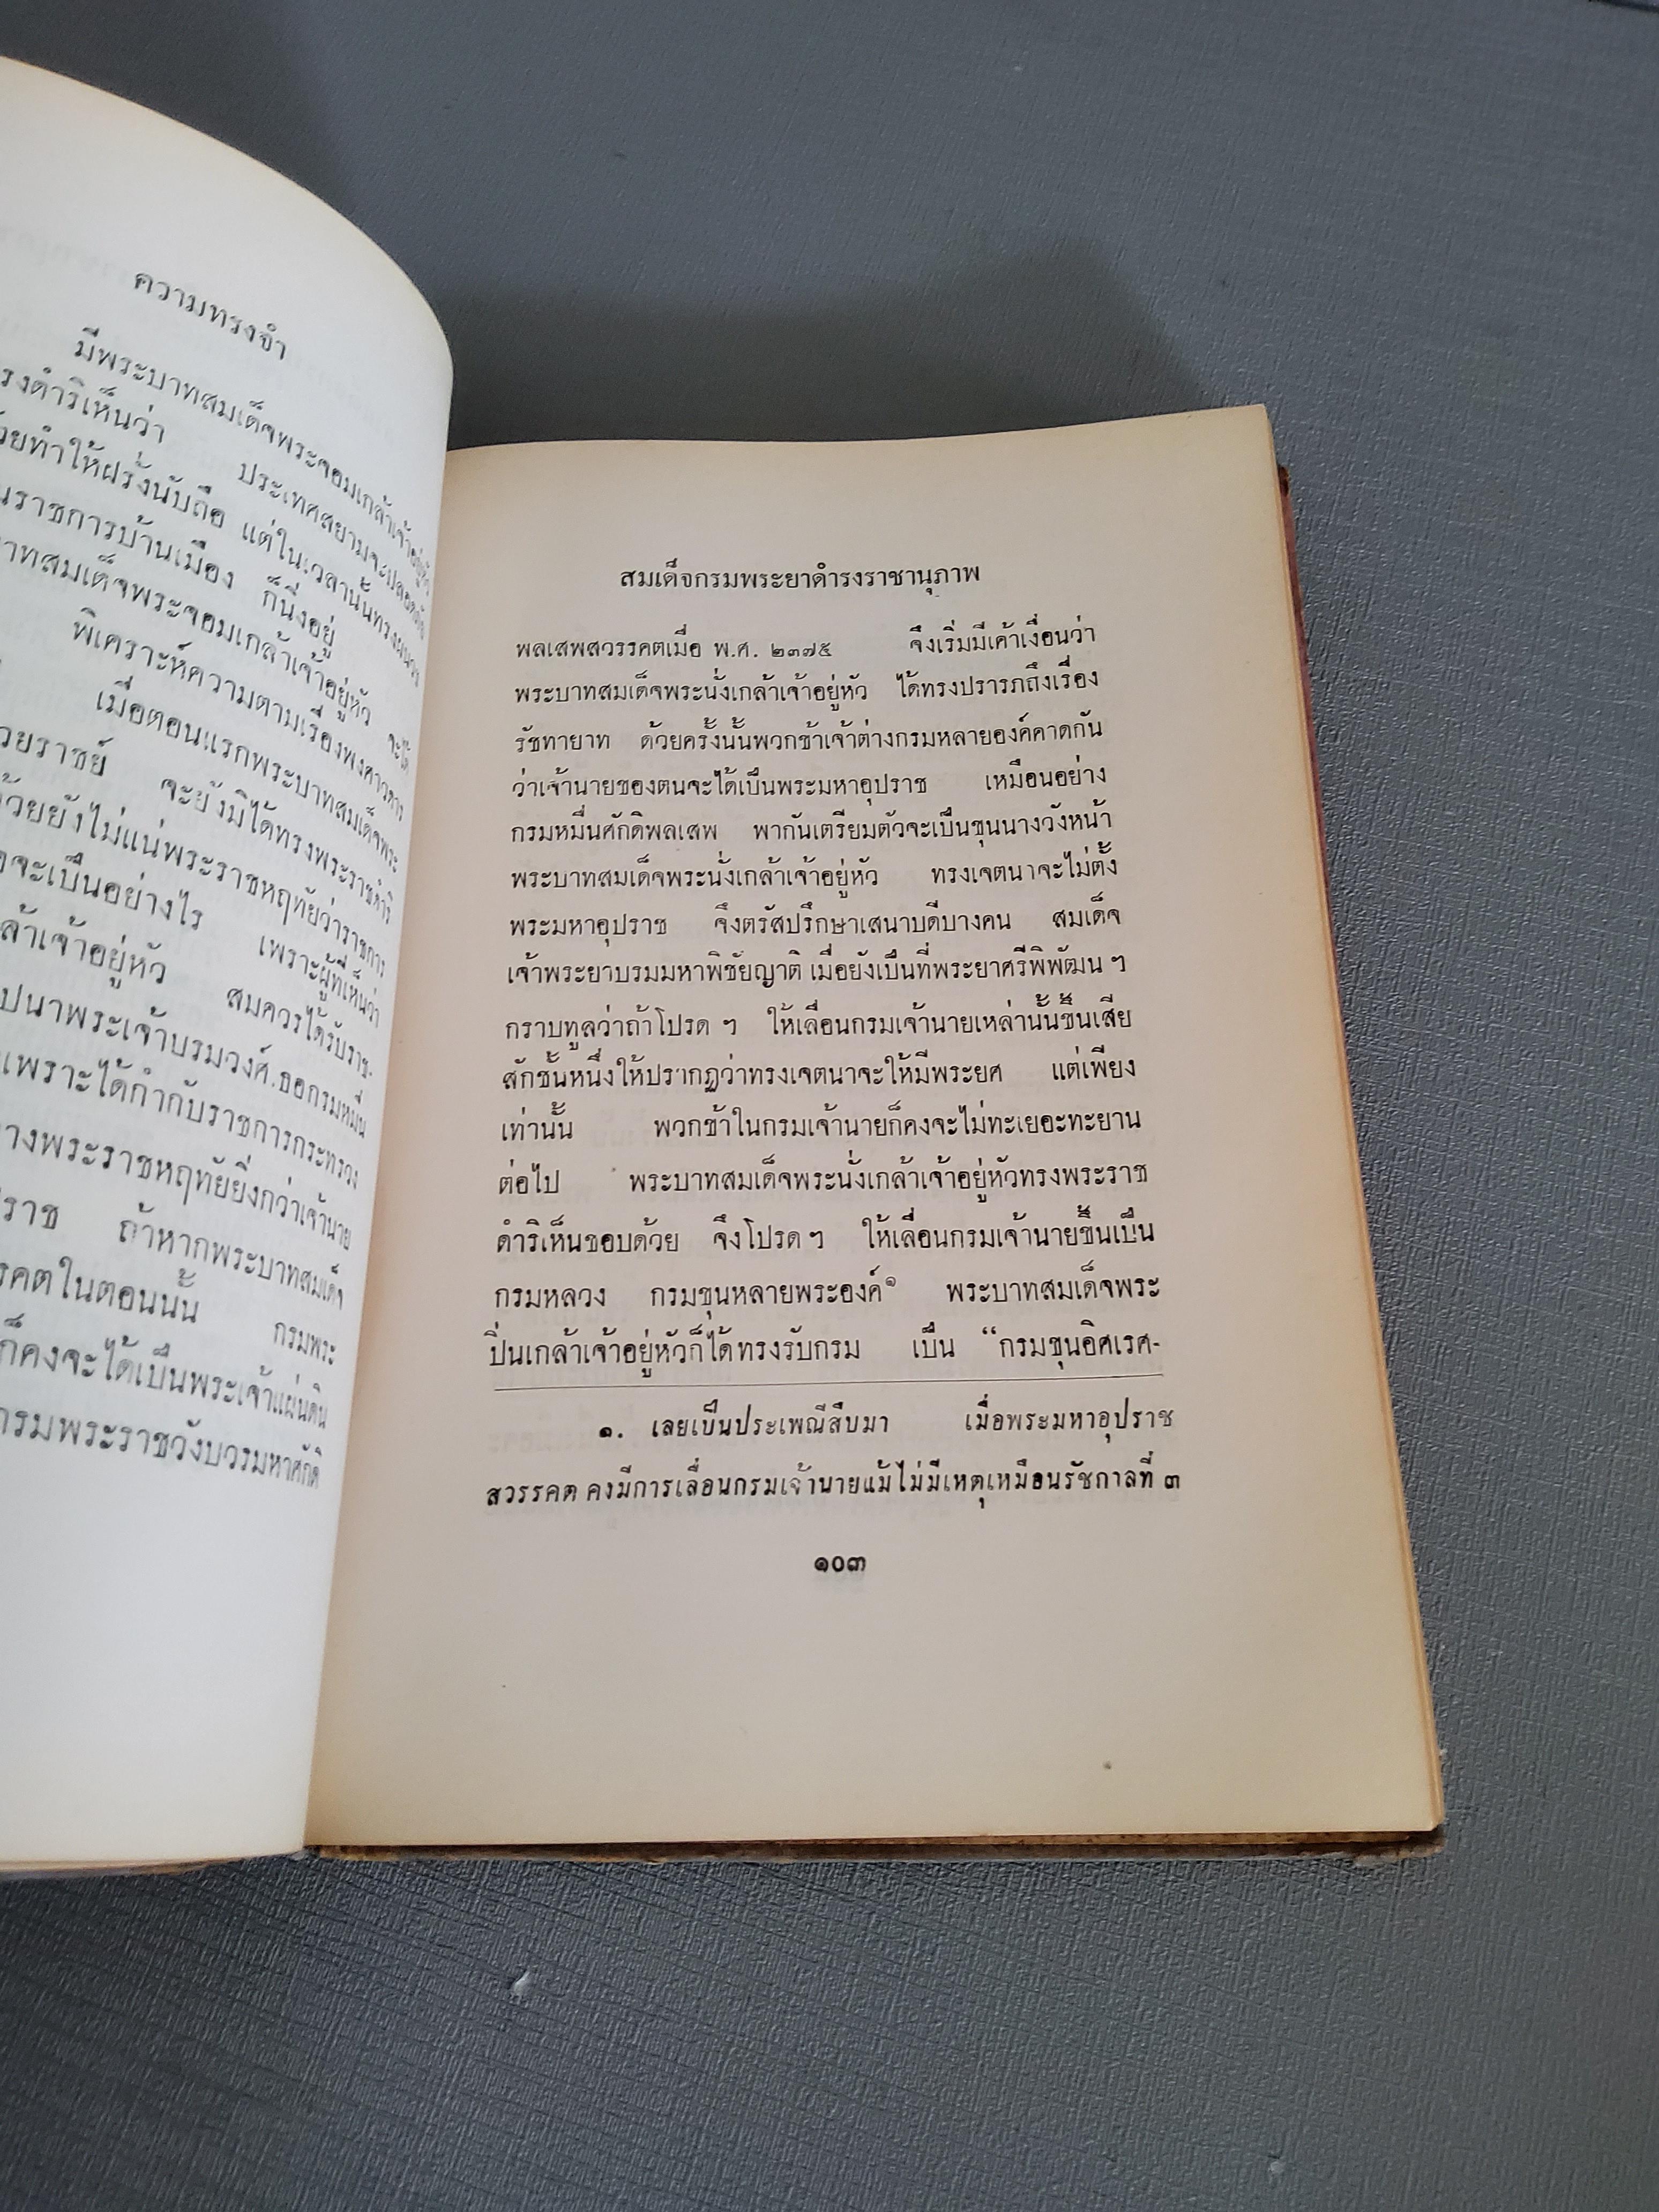 ความทรงจำ
มีพระบาทสมเด็จพระจอมเกล้าเจ้าอยู่หัว
รงดำริเห็นว่า ประเทศสยามจะปลอดภัย
วยทำให้ฝรั่งนับถือ แต่ในเวลานั้นทรงผนวช
นราชการบ้านเมือง ก็นิ่งอยู่
าทสมเด็จพระจอมเกล้าเจ้าอยู่หัว จะได้
พิเคราะห์ความตามเรื่องพงศาวดาร
เมื่อตอนแรกพระบาทสมเด็จพระ
วยราชย์ จะยังมิได้ทรงพระราชดำริ
ด้วยยังไม่แน่พระราชหฤทัยว่าราชการ
จะเป็นอย่างไร เพราะผู้ที่เห็นว่า
ล้าเจ้าอยู่หัว สมควรได้รับราช-
ปนาพระเจ้าบรมวงศ์เธอกรมหมื่น
เพราะได้กำกับราชการกระทรวง
างพระราชหฤทัยยิ่งกว่าเจ้านาย
ราช ถ้าหากพระบาทสมเด็จ
รคตในตอนนั้น กรมพระ
ก็คงจะได้เป็นพระเจ้าแผ่นดิน
กรมพระราชวังบวรมหาศักดิ
สมเด็จกรมพระยาดำรงราชานุภาพ
พลเสพสวรรคตเมื่อ พ.ศ. ๒๓๗๕ จึงเริ่มมีเค้าเงื่อนว่า
พระบาทสมเด็จพระนั่งเกล้าเจ้าอยู่หัว ได้ทรงปรารภถึงเรื่อง
รัชทายาท ด้วยครั้งนั้นพวกข้าเจ้าต่างกรมหลายองค์คาดกัน
ว่าเจ้านายของตนจะได้เป็นพระมหาอุปราช เหมือนอย่าง
กรมหมื่นศักดิพลเสพ พากันเตรียมตัวจะเป็นขุนนางวังหน้า
พระบาทสมเด็จพระนั่งเกล้าเจ้าอยู่หัว ทรงเจตนาจะไม่ตั้ง
พระมหาอุปราช จึงตรัสปรึกษาเสนาบดีบางคน สมเด็จ
เจ้าพระยาบรมมหาพิชัยญาติ เมื่อยังเป็นที่พระยาศรีพิพัฒน ฯ
กราบทูลว่าถ้าโปรด ฯ ให้เลื่อนกรมเจ้านายเหล่านั้นขึ้นเสีย
สักชั้นหนึ่งให้ปรากฏว่าทรงเจตนาจะให้มีพระยศ แต่เพียง
เท่านั้น พวกข้าในกรมเจ้านายก็คงจะไม่ทะเยอะทะยาน
ต่อไป พระบาทสมเด็จพระนั่งเกล้าเจ้าอยู่หัวทรงพระราช
ดำริเห็นชอบด้วย จึงโปรด ฯ ให้เลื่อนกรมเจ้านายขึ้นเป็น
กรมหลวง กรมขุนหลายพระองค์๑ พระบาทสมเด็จพระ
ปิ่นเกล้าเจ้าอยู่หัวก็ได้ทรงรับกรม เป็น “กรมขุนอิศเรศ-
๑. เลยเป็นประเพณีสืบมา เมื่อพระมหาอุปราช
สวรรคต คงมีการเลื่อนกรมเจ้านายแม้ไม่มีเหตุเหมือนรัชกาลที่ ๓
๑๐๓